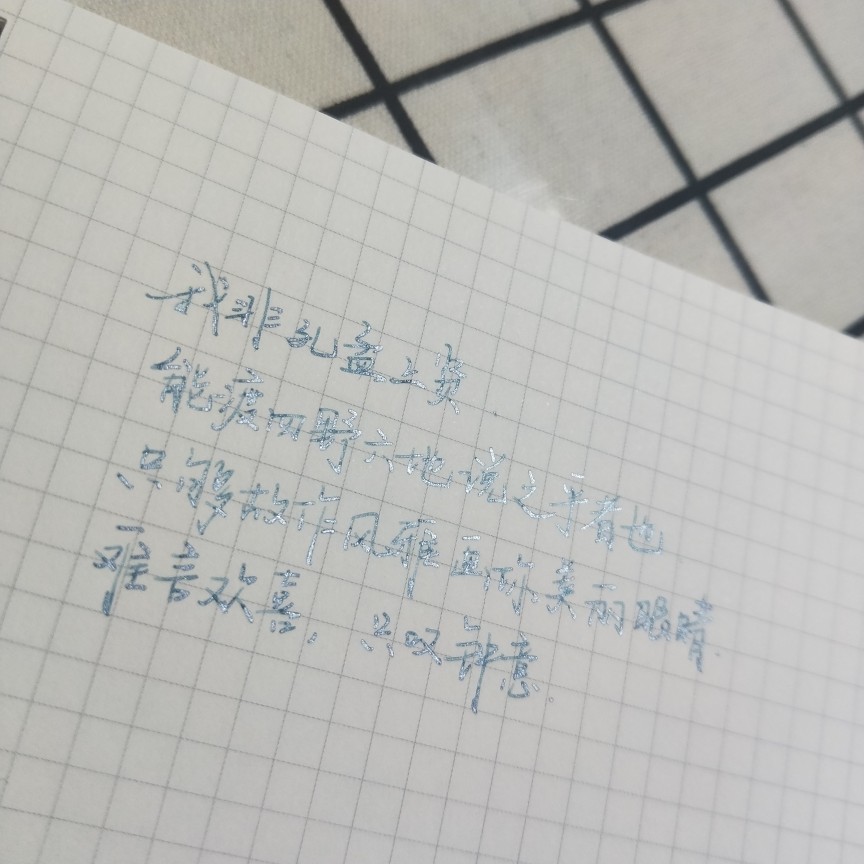 我非孔孟之资
能疲四野六地说之乎者也
只够故作风雅画你美丽眼睛
难言欢喜，只叹钟意.